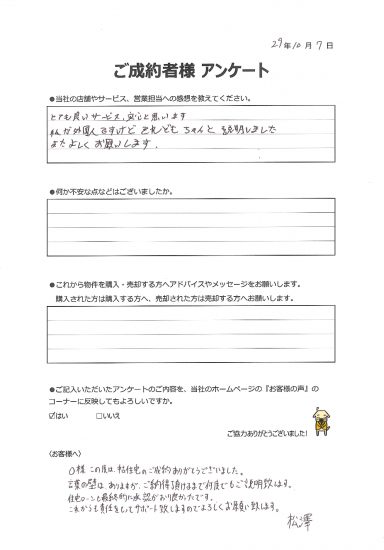 29年10月7日
ご成約者様 アンケート
●当社の店舗やサービス、営業担当への感想を教えてください。
とても良いサービス、安心と思います
私が外国人ですけど それども ちゃんと 説明しました
またよろしく お願いします。
●何か不安な点などはございましたか。
●これから物件を購入・売却する方へアドバイスやメッセージをお願いします。
購入された方は購入する方へ、売却された方は売却する方へお願いします。
●ご記入いただいたアンケートのご内容を、当社のホームページの『お客様の声』の
コーナーに反映してもよろしいですか。
☑はい □いいえ
ご協力ありがとうございました!
〈お客様へ〉
O様 この度は、当社宅のご成約ありがとうございました。
言葉の壁はありますが、ご納得頂けるまで何度でもご説明致します。
住宅ローンも最終的に承認がおり良かったです。
これからも責任をもしてサポート致しますのでよろしくお願い致します。
松澤